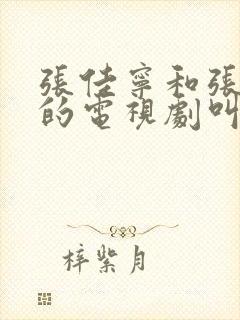 張佳寧和張
的電視劇叫
梓紫月